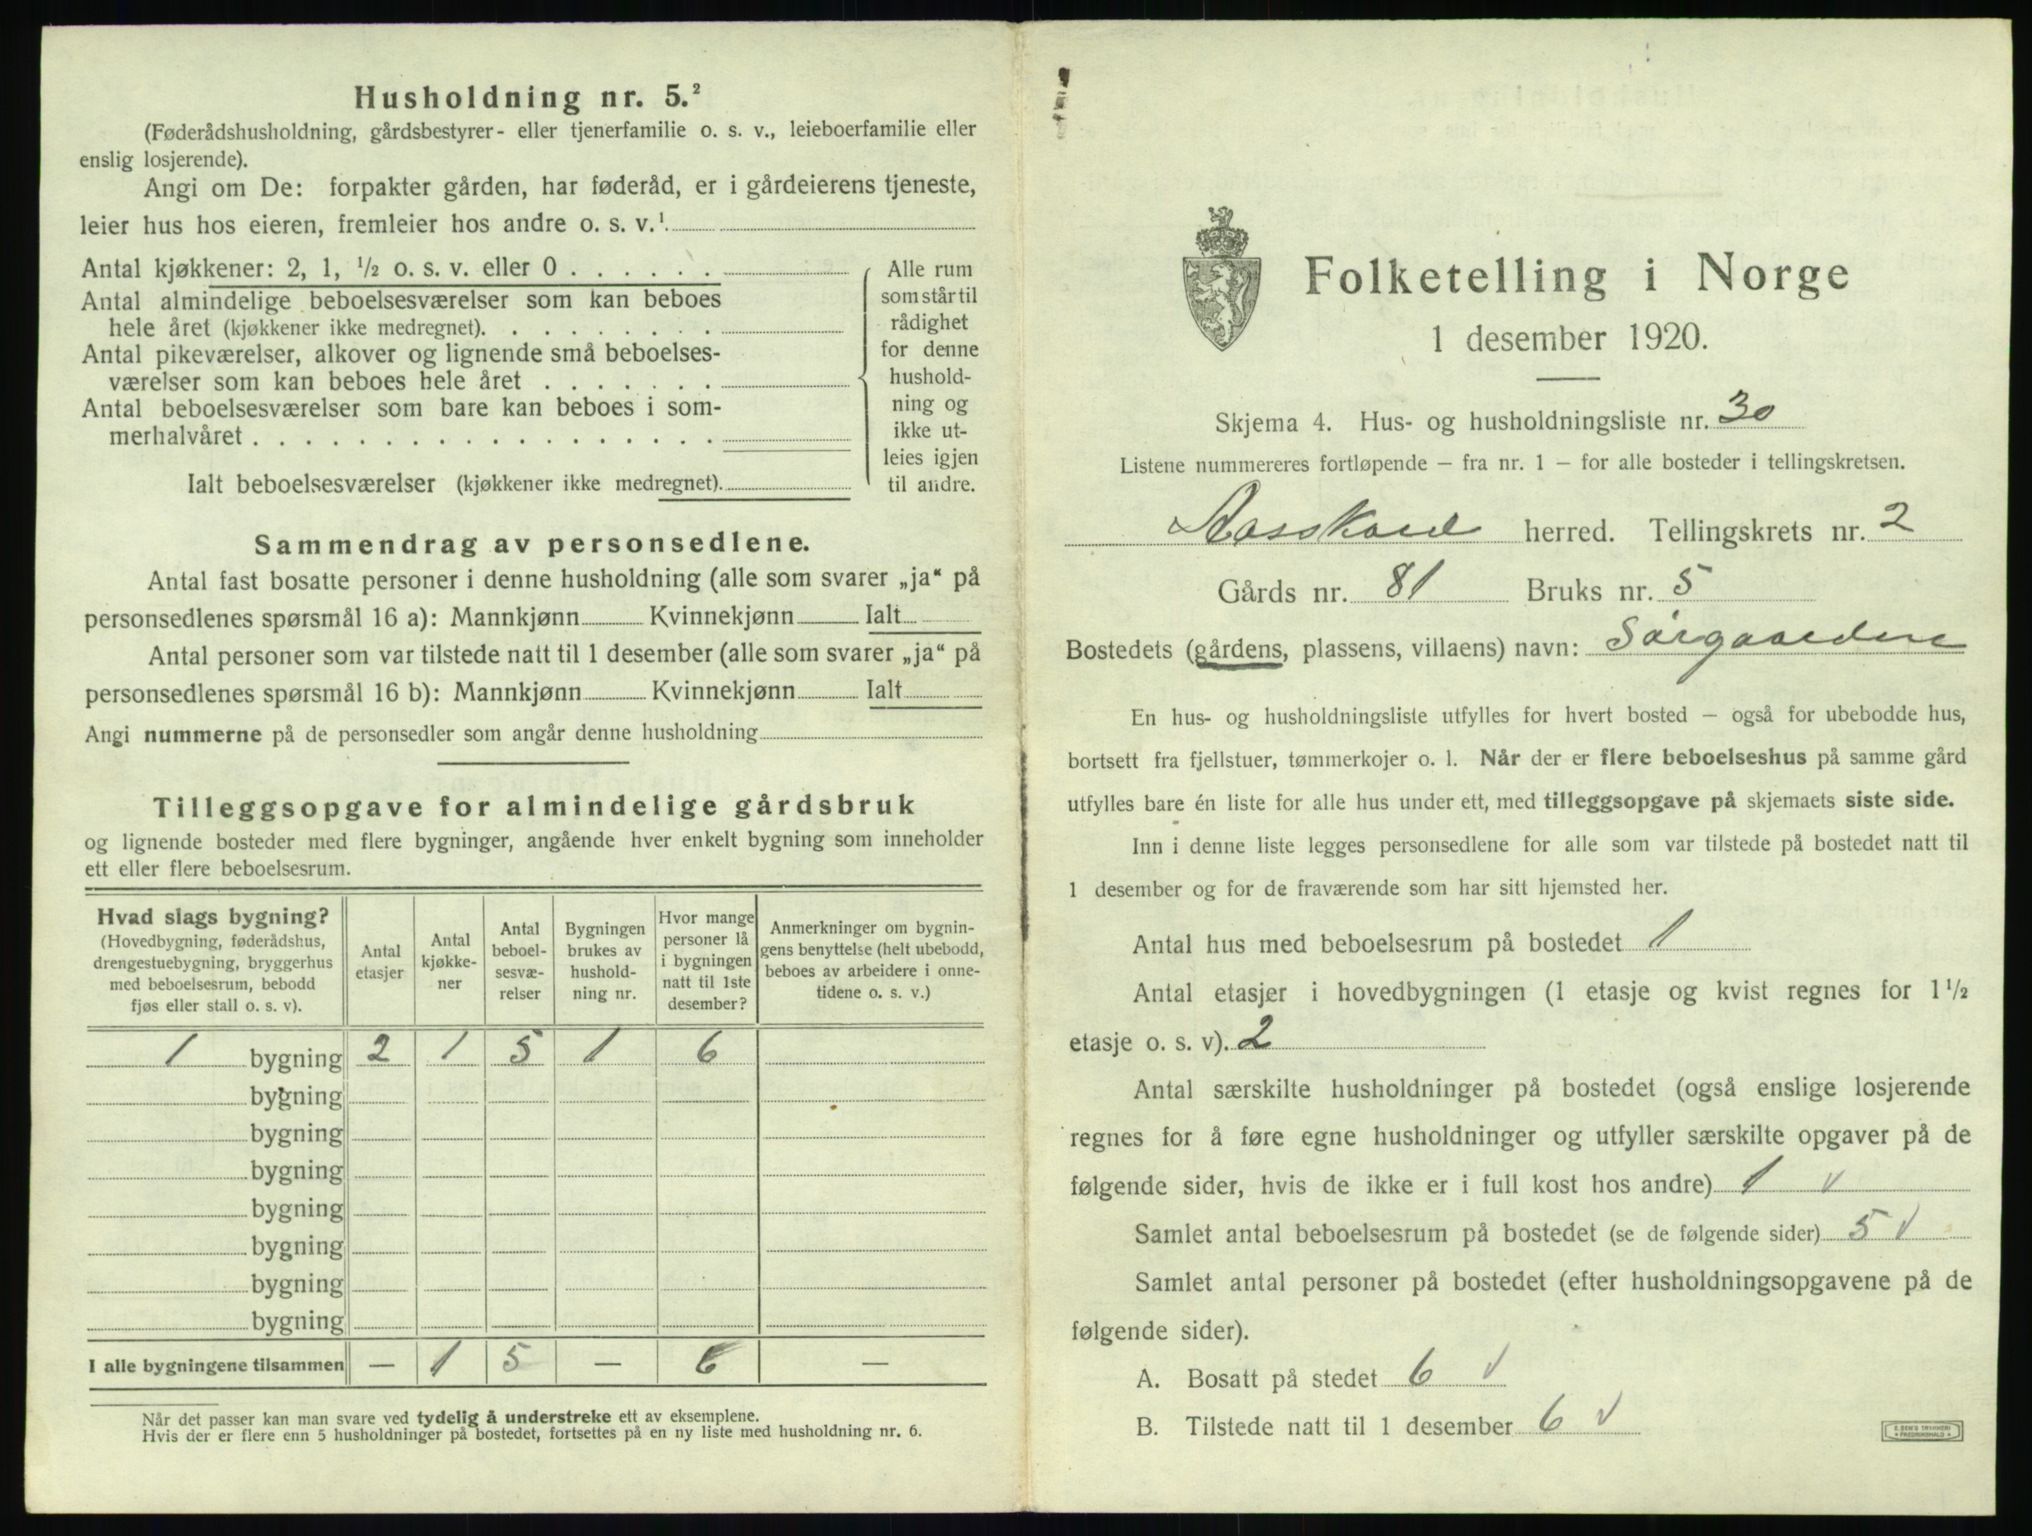 Husholdning nr. 5.²
(Føderådshusholdning, gårdsbestyrer- eller tjenerfamilie o. s. v., leieboerfamilie eller
enslig losjerende).
Angi om De: forpakter gården, har føderåd, er i gårdeierens tjeneste,
leier hus hos eieren, fremleier hos andre o. s. v.¹
Antal kjøkkener: 2, 1, ½ o. s. v. eller 0 . . . . . .
Antal almindelige beboelsesværelser som kan beboes
hele året (kjøkkener ikke medregnet). . . . . . . . .
Antal pikeværelser, alkover og lignende små beboelses-
værelser som kan beboes hele året . . . . . . .
Antal beboelsesværelser som bare kan beboes i som-
merhalvåret . . . . . . . . . . . . . . . . . .
Ialt beboelsesværelser (kjøkkener ikke medregnet).
Alle rum
som står til
rådighet
for denne
hushold-
ning og
ikke ut-
leies igjen
til andre.
Sammendrag av personsedlene.
Antal fast bosatte personer i denne husholdning (alle som svarer „ja“ på
personsedlenes spørsmål 16 a): Mannkjønn Kvinnekjønn Ialt
Antal personer som var tilstede natt til 1 desember (alle som svarer „ja“ på
personsedlenes spørsmål 16 b): Mannkjønn Kvinnekjønn Ialt
Angi nummerne på de personsedler som angår denne husholdning
Tilleggsopgave for almindelige gårdsbruk
og lignende bosteder med flere bygninger, angående hver enkelt bygning som inneholder
ett eller flere beboelsesrum.
Hvad slags bygning?
(Hovedbygning, føderådshus,
drengestuebygning, bryggerhus
med beboelsesrum, bebodd
fjøs eller stall o. s. v).
Antal
etasjer
Antal
kjøkke-
ner
Antal
beboel-
sesvæ-
relser
Bygningen
brukes av
hushold-
ning nr.
Hvor mange
personer lå
i bygningen
natt til 1ste
desember?
Anmerkninger om bygnin-
gens benyttelse (helt ubebodd,
beboes av arbeidere i onne-
tidene o. s. v.)
1 bygning 2 1 5 1 6
bygning
bygning
bygning
bygning
bygning
bygning
bygning
I alle bygningene tilsammen — 1 5 — 6 —
Når det passer kan man svare ved tydelig å understreke ett av eksemplene.
Hvis der er flere enn 5 husholdninger på bostedet, fortsettes på en ny liste med husholdning nr. 6.
Folketelling i Norge
1 desember 1920.
Skjema 4. Hus- og husholdningsliste nr. 30
Listene nummereres fortløpende – fra nr. 1 – for alle bosteder i tellingskretsen.
Aasskard herred. Tellingskrets nr. 2
Gårds nr. 81 Bruks nr. 5
Bostedets (gårdens, plassens, villaens) navn: Sørgaarden
En hus- og husholdningsliste utfylles for hvert bosted – også for ubebodde hus,
bortsett fra fjellstuer, tømmerkojer o. l. Når der er flere beboelseshus på samme gård
utfylles bare én liste for alle hus under ett, med tilleggsopgave på skjemaets siste side.
Inn i denne liste legges personsedlene for alle som var tilstede på bostedet natt til
1 desember og for de fraværende som har sitt hjemsted her.
Antal hus med beboelsesrum på bostedet 1
Antal etasjer i hovedbygningen (1 etasje og kvist regnes for 1½
etasje o. s. v). 2
Antal særskilte husholdninger på bostedet (også enslige losjerende
regnes for å føre egne husholdninger og utfyller særskilte opgaver på de
følgende sider, hvis de ikke er i full kost hos andre) 1 v
Samlet antal beboelsesrum på bostedet (se de følgende sider) 5 v
Samlet antal personer på bostedet (efter husholdningsopgavene på de
følgende sider).
A. Bosatt på stedet 6 v
B. Tilstede natt til 1 desember 6 v